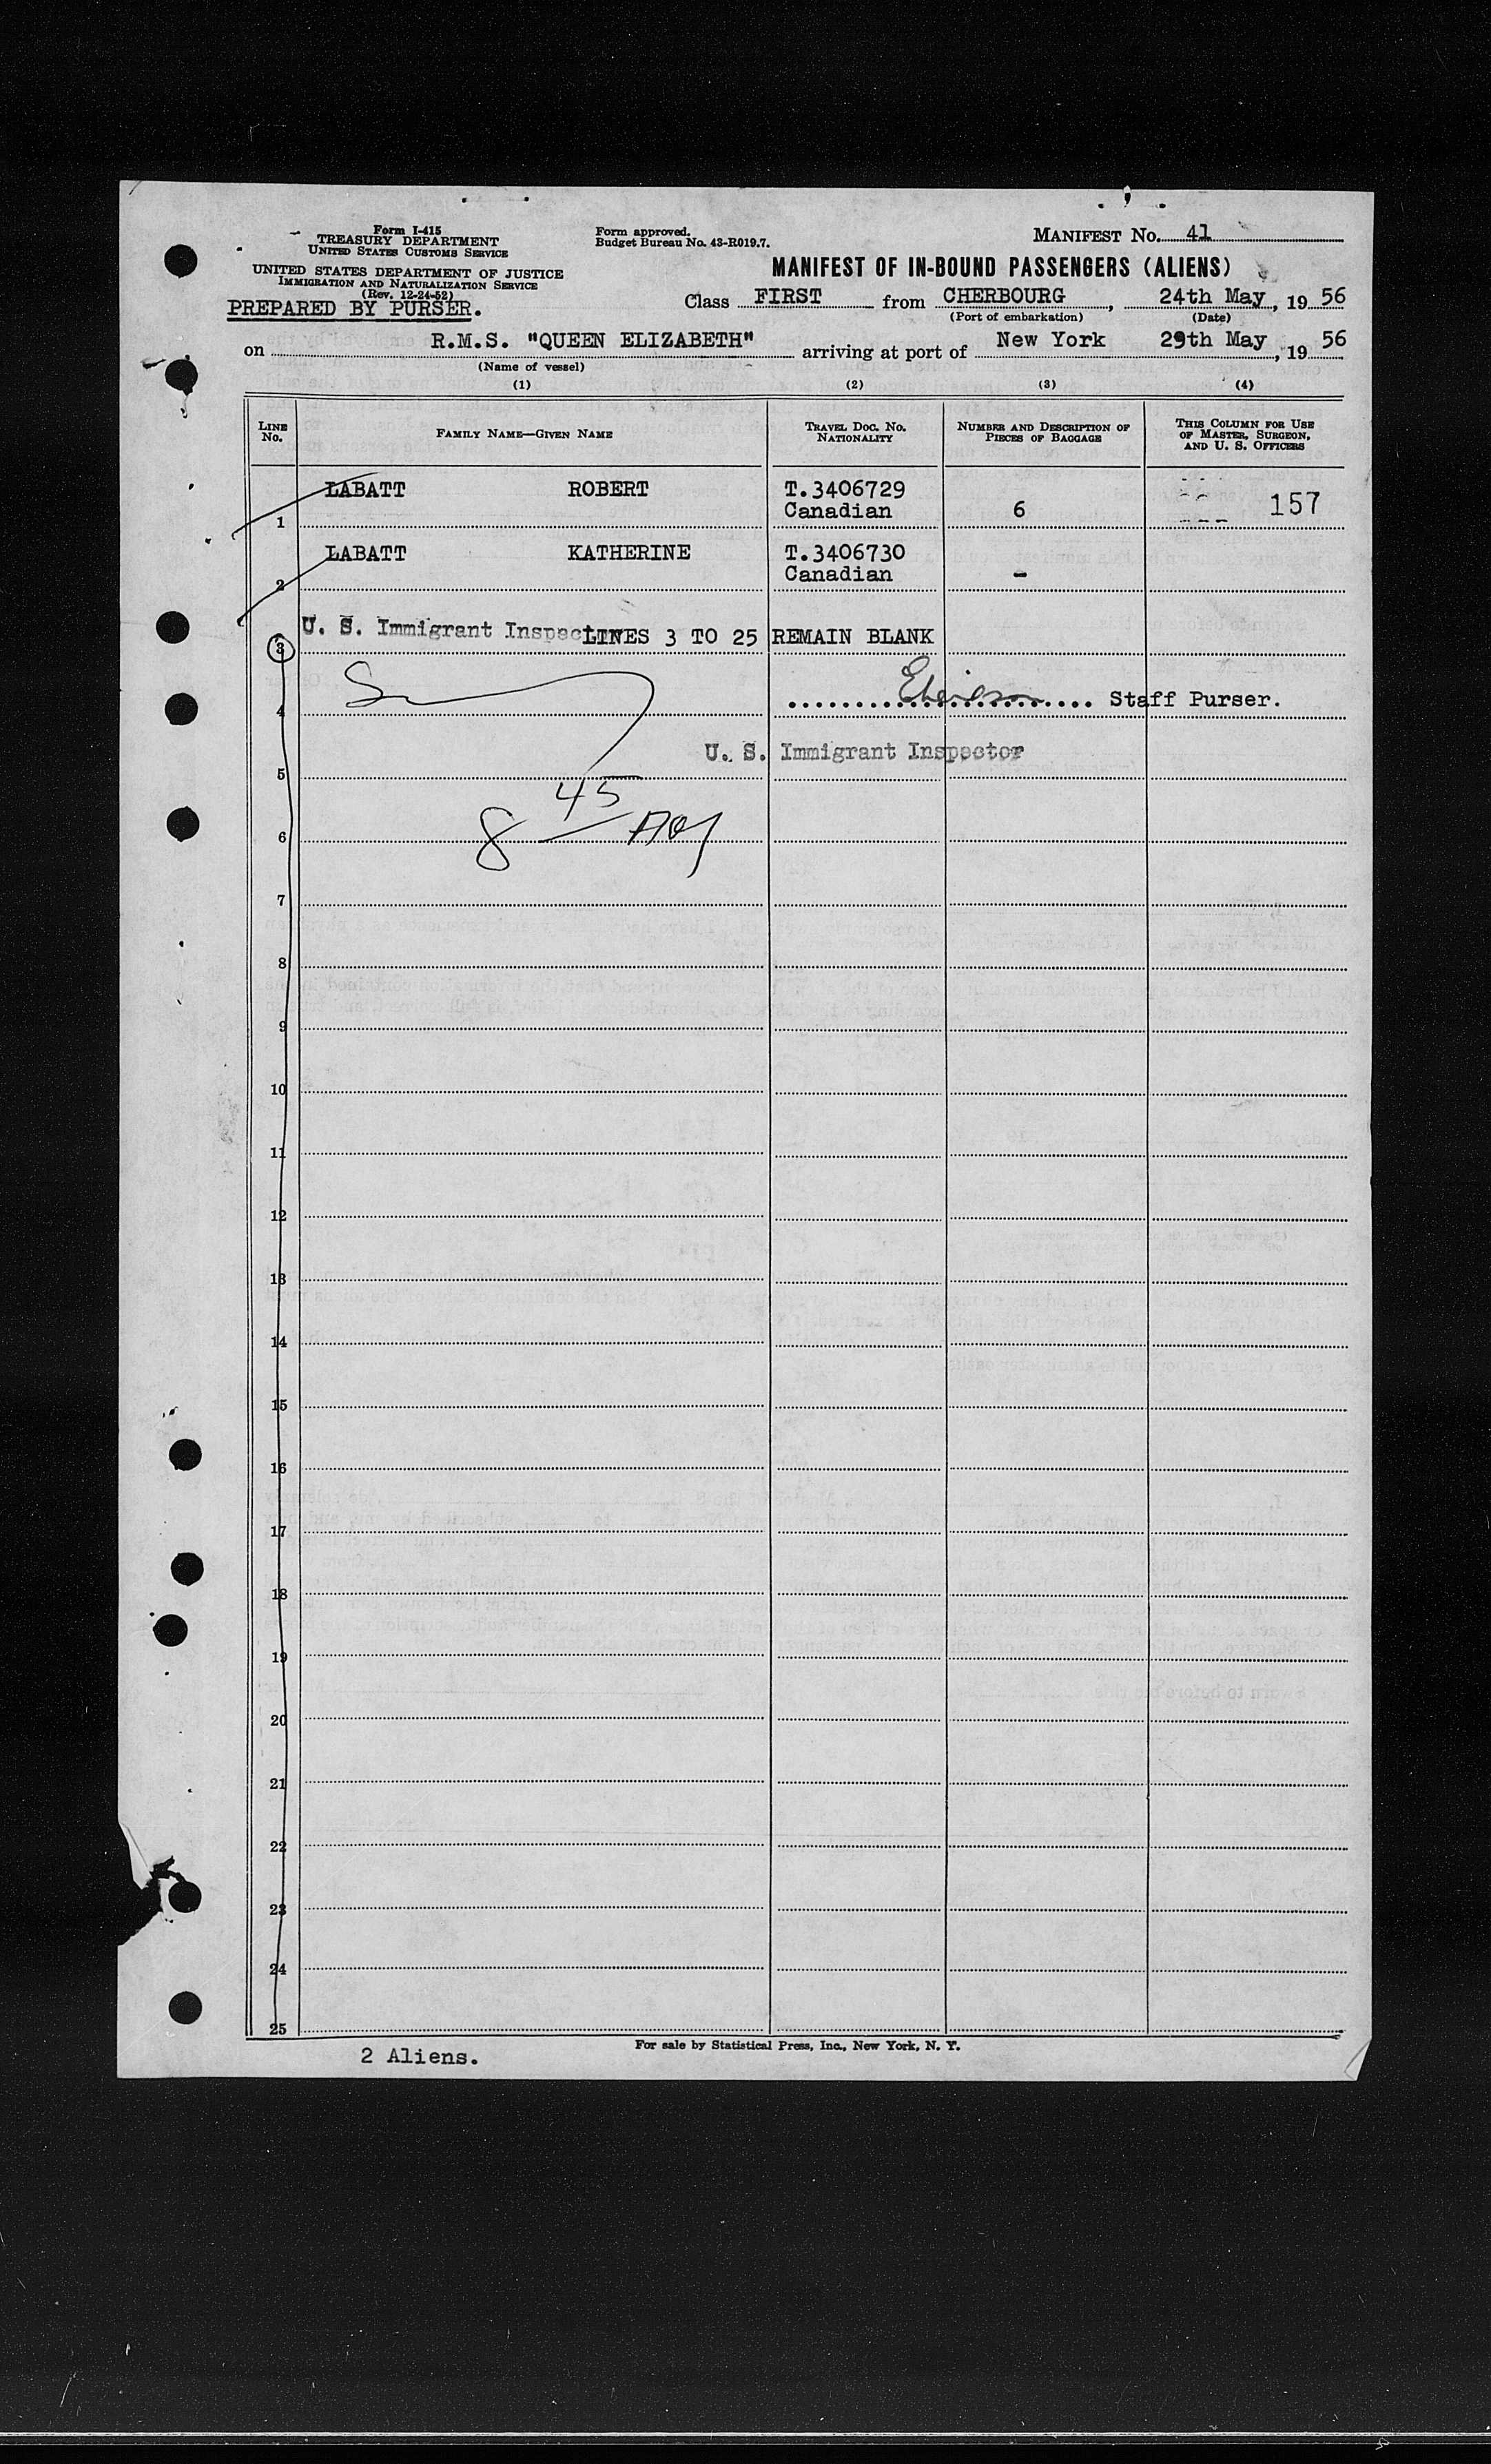 Form I-415
TREASURY DEPARTMENT
UNITED STATES CUSTOMS SERVICE
UNITED STATES DEPARTMENT OF JUSTICE
IMMIGRATION AND NATURALIZATION SERVICE
(Rev. 12-24-52)
PREPARED BY PURSER.
Form approved.
Budget Bureau No. 43-R019.7.
MANIFEST No. 41
MANIFEST OF IN-BOUND PASSENGERS (ALIENS)
Class FIRST from CHERBOURG, 24th May, 19 56
(Port of embarkation) (Date)
on R.M.S. "QUEEN ELIZABETH" arriving at port of New York 29th May, 19 56
(Name of vessel)
(1) (2) (3) (4)
LINE No. FAMILY NAME—GIVEN NAME TRAVEL DOC. NO. NATIONALITY NUMBER AND DESCRIPTION OF PIECES OF BAGGAGE THIS COLUMN FOR USE OF MASTER, SURGEON, AND U. S. OFFICERS
LABATT ROBERT T.3406729
1 Canadian 6 157
LABATT KATHERINE T.3406730
2 Canadian -
U. S. Immigrant Inspector LINES 3 TO 25 REMAIN BLANK
3
4 Staff Purser.
U. S. Immigrant Inspector
5
8 45
6
7
8
9
10
11
12
13
14
15
16
17
18
19
20
21
22
23
24
25
2 Aliens.
For sale by Statistical Press, Inc., New York, N. Y.